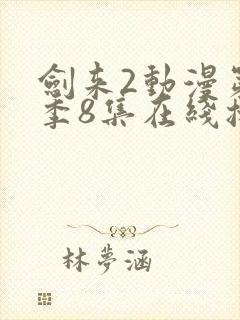 劍来2動漫
季8集在綫
林夢涵